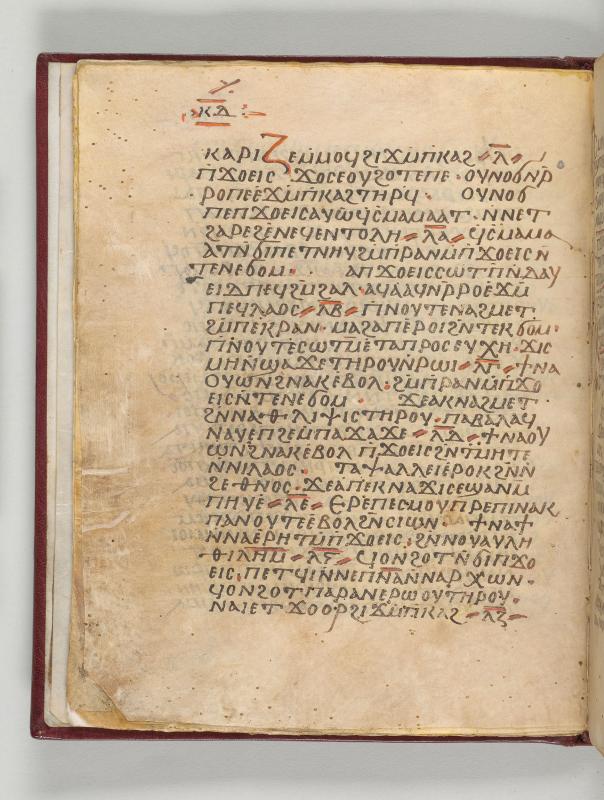 ⲕ̅ⲇ̅
ⲕⲁⲣⲓⲍⲉⲙⲙⲟϥϩⲓϫⲙ̅ⲡⲕⲁϩ ⲗ̅
ⲡϫⲟⲉⲓⲥ ϫⲟⲥⲉⲟⲩϩⲟⲧⲉⲡⲉ · ⲟⲩⲛⲟϭⲛ̅ⲣ
ⲣⲟⲡⲉⲉϫⲙ̅ⲡⲕⲁϩⲧⲏⲣϥ · ⲟⲩⲛⲟϭ
ⲡⲉⲡϫⲟⲉⲓⲥⲁⲩⲱϥⲥⲙⲁⲙⲁⲁⲧ · ⲛⲛⲉⲧ
ϩⲁⲣⲉϩⲉⲛⲉϥⲉⲛⲧⲟⲗⲏ ⲗ̅ⲁ̅ ϥⲥⲙⲁⲙⲟ
ⲁⲧⲛ̅ϭⲓⲡⲉⲧⲛⲏⲩϩⲙ̅ⲡⲣⲁⲛⲙ̅ⲡϫⲟⲉⲓⲥⲛ̅
ⲧⲉⲛⲉϭⲟⲙ · ⲁⲡϫⲟⲉⲓⲥⲥⲱⲧⲡ̅ⲛ̅ⲇⲁⲩ
ⲉⲓⲇⲡⲉϥϩⲙ̅ϩⲁⲗ · ⲁϥⲁⲁϥⲛ̅ⲣ̅ⲣⲟⲉϫⲙ̅
ⲡⲉϥⲗⲁⲟⲥ ⲗ̅ⲃ̅ ⲡⲛⲟⲩⲧⲉⲛⲁϩⲙⲉⲧ
ϩⲙ̅ⲡⲉⲕⲣⲁⲛ · ⲙⲁϩⲁⲡⲉⲣⲟⲓϩⲛ̅ⲧⲉⲕϭⲟⲙ ·
ⲡⲛⲟⲩⲧⲉⲥⲱⲧⲙ̅ⲉⲧⲁⲡⲣⲟⲥⲉⲩⲭⲏ · ϫⲓⲥ
ⲙⲏⲛ̅ϣⲁϫⲉⲧⲏⲣⲟⲩⲛ̅ⲣⲱⲓ ⲗ̅ⲅ̅ ϯⲛⲁ
ⲟⲩⲱⲛϩ̅ⲛⲁⲕⲉⲃⲟⲗ : ϩⲙ̅ⲡⲣⲁⲛⲙ̅ⲡϫⲟ
ⲉⲓⲥⲛ̅ⲧⲉⲛⲉϭⲟⲙ · ϫⲉⲁⲕⲛⲁϩⲙⲉⲧ
ϩⲛⲛⲁⲑⲗⲓⲯⲓⲥⲧⲏⲣⲟⲩ · ⲡⲁⲃⲁⲗⲁϥ
ⲛⲁⲩⲉⲡϩⲉⲙⲡⲁϫⲁϫⲉ ⲗ̅ⲇ̅ ϯⲛⲁⲟⲩ
ⲱⲛϩ̅ⲛⲁⲕⲉⲃⲟⲗ ⲡϫⲟⲉⲓⲥϩⲛ̅ⲧⲙⲏⲧⲉ
ⲛⲛⲓⲗⲁⲟⲥ · ⲧⲁⲯⲁⲗⲗⲉⲓⲉⲣⲟⲕϩⲛ̅ⲛ̅
ϩⲉⲑⲛⲟⲥ · ϫⲉⲁⲡⲉⲕⲛⲁϫⲓⲥⲉϣⲁⲛⲙ̅
ⲡⲏⲩⲉ ⲗ̅ⲉ̅ ⲉⲣⲉⲡⲉⲥⲙⲟⲩⲡⲣⲉⲡⲓⲛⲁⲕ
ⲡⲁⲛⲟⲩⲧⲉⲉⲃⲟⲗϩⲛ̅ⲥⲓⲱⲛ · ϯⲛⲁϯ
ⲛⲛⲁⲉⲣⲏⲧⲙ̅ⲡϫⲟⲉⲓⲥ : ϩⲛⲛⲟⲩⲁⲩⲗⲏ
ⲑⲓⲗⲏ̅ⲙ̅ ⲗ̅ⲋ̅ ϥⲟⲛϩⲟⲧⲛ̅ϭⲓⲡϫⲟ
ⲉⲓⲥ · ⲡⲉⲧϥⲓⲛⲛⲉⲡⲛ̅ⲁ̅ⲛ̅ⲛⲁⲣⲭⲱⲛ ·
ϥⲟⲛϩⲟⲧⲡⲁⲣⲁⲛⲉⲣⲱⲟⲩⲧⲏⲣⲟⲩ ·
ⲛⲁⲓⲉⲧϫⲟⲟⲣϩⲓϫⲙ̅ⲡⲕⲁϩ ⲗ̅ⲍ̅